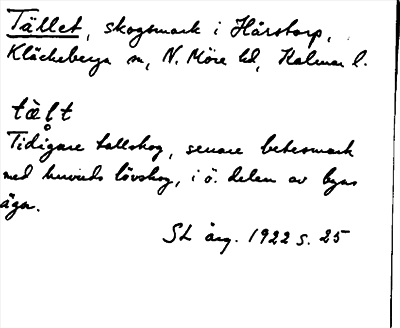 Tället, skogsmark i Hårstorp,
Kläckeberga sn, N. Möre hd, Kalmar l.
tält
Tidigare tallskog, senare betesmark
med huvuds lövskog, i ö. delen av byns
ägor.
SL årg. 1922 s. 25